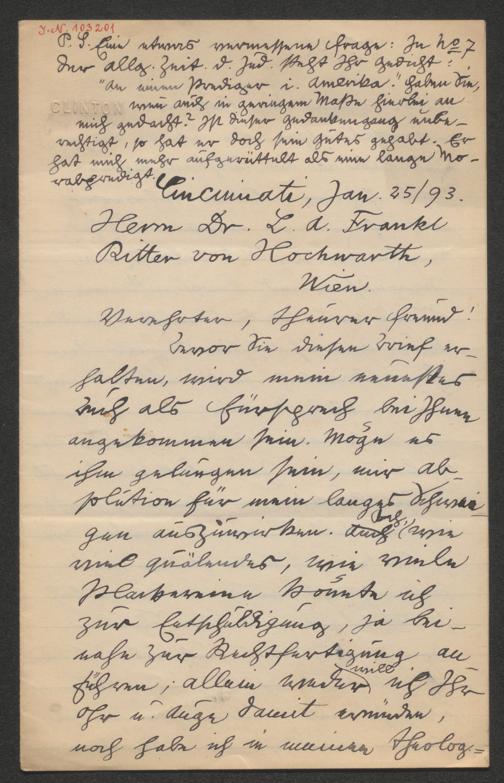 J.-N. 103201
P. S. Eine etwas vermessene Frage: In No 7
der allg. Zeit. d. Jud. steht Ihr Gedicht:
"An einen Prediger i. Amerika." Haben Sie,
wenn auch in geringem Maße hierbei an
CLINTON
mich gedacht? Ist dieser Gedankengang unbe-
rechtigt, so hat er doch sein Gutes gehabt. Er
hat mich mehr aufgerüttelt als eine lange Mo-
ralpredigt.
Cincinnati, Jan. 25/93.
Herrn Dr. L. A. Frankl
Ritter von Hochwarth,
Wien.
Verehrter, theurer Freund!
Bevor Sie diesen Brief er-
halten, wird mein neuestes
Buch als Fürsprech bei Ihnen
angekommen sein. Möge es
ihm gelungen sein, mir Ab-
solution für mein langes Schwei-
gen auszuwirken. Ach, wie
viel quälendes, wie viele
Plackereien könnte ich
zur Entschuldigung, ja bei-
nahe zur Rechtfertigung an
führen; allein weder will ich Ihr
Ohr u. Auge damit ermüden,
noch habe ich in meinen theolog=